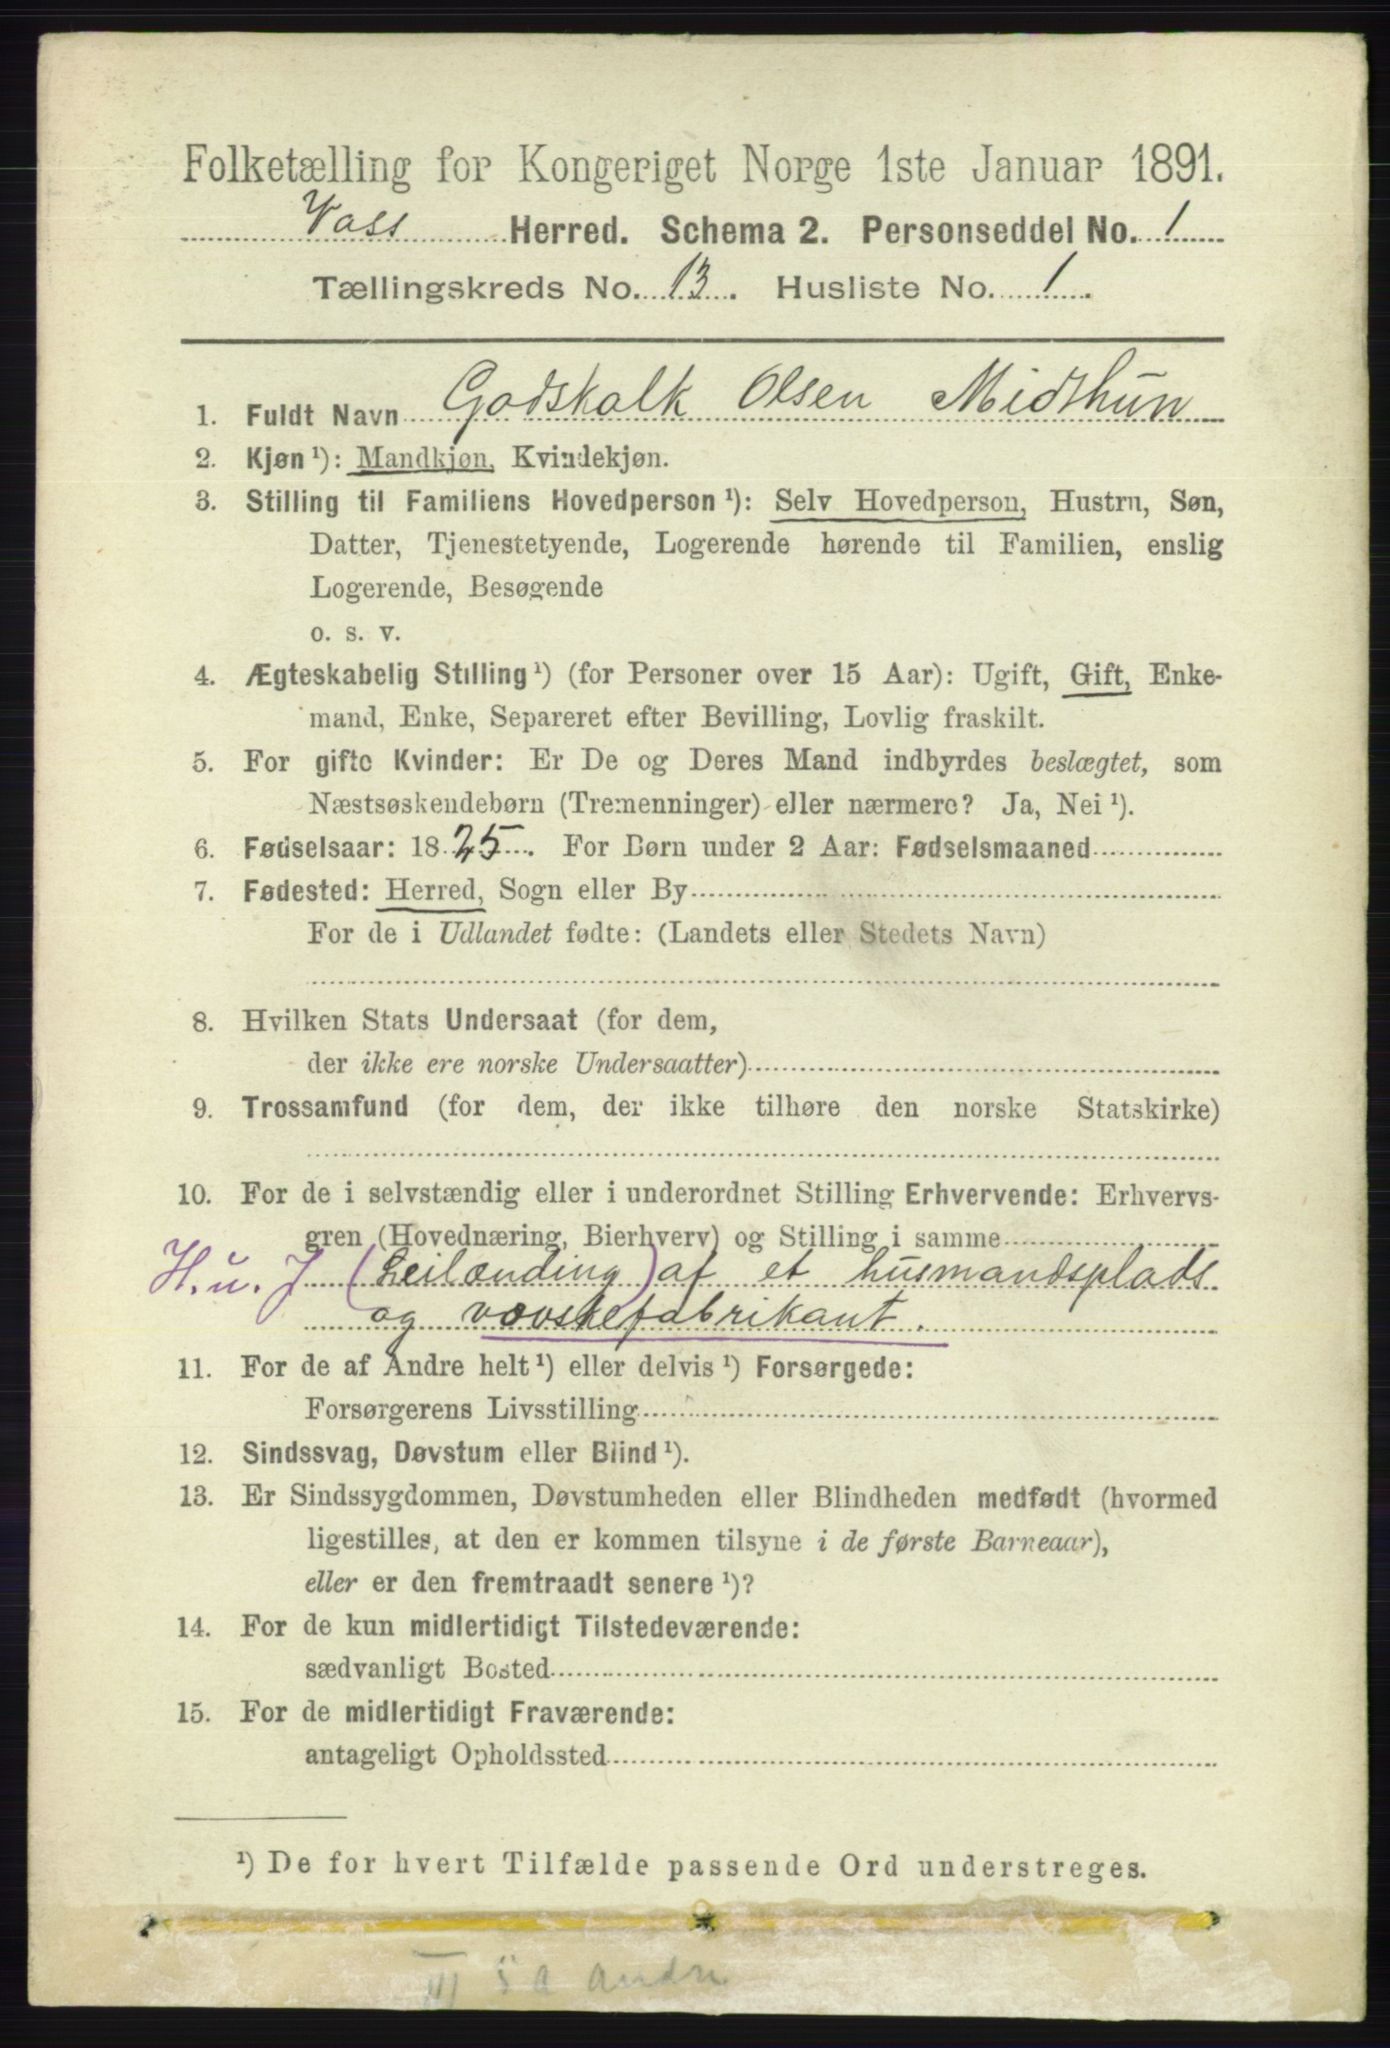 Folketælling for Kongeriget Norge 1ste Januar 1891.
Voss Herred. Schema 2. Personseddel No. 1
Tællingskreds No. 13. Husliste No. 1.
1. Fuldt Navn Godskalk Olsen Midthun
2. Kjøn ¹): Mandkjøn, Kvindekjøn.
3. Stilling til Familiens Hovedperson ¹): Selv Hovedperson, Hustru, Søn,
Datter, Tjenestetyende, Logerende hørende til Familien, enslig
Logerende, Besøgende
o. s. v.
4. Ægteskabelig Stilling ¹) (for Personer over 15 Aar): Ugift, Gift, Enke-
mand, Enke, Separeret efter Bevilling, Lovlig fraskilt.
5. For gifte Kvinder: Er De og Deres Mand indbyrdes beslægtet, som
Næstsøskendebørn (Tremenninger) eller nærmere? Ja, Nei ¹).
6. Fødselsaar: 1825. For Børn under 2 Aar: Fødselsmaaned
7. Fødested: Herred, Sogn eller By
For de i Udlandet fødte: (Landets eller Stedets Navn)
8. Hvilken Stats Undersaat (for dem,
der ikke ere norske Undersaatter)
9. Trossamfund (for dem, der ikke tilhøre den norske Statskirke)
10. For de i selvstændig eller i underordnet Stilling Erhvervende: Erhvervs-
gren (Hovednæring, Bierhverv) og Stilling i samme
H. u. J (Leilænding) af et husmandsplads
og vovskefabrikant.
11. For de af Andre helt ¹) eller delvis ¹) Forsørgede:
Forsørgerens Livsstilling
12. Sindssvag, Døvstum eller Blind ¹).
13. Er Sindssygdommen, Døvstumheden eller Blindheden medfødt (hvormed
ligestilles, at den er kommen tilsyne i de første Barneaar),
eller er den fremtraadt senere ¹)?
14. For de kun midlertidigt Tilstedeværende:
sædvanligt Bosted
15. For de midlertidigt Fraværende:
antageligt Opholdssted
¹) De for hvert Tilfælde passende Ord understreges.
III 5 a andre